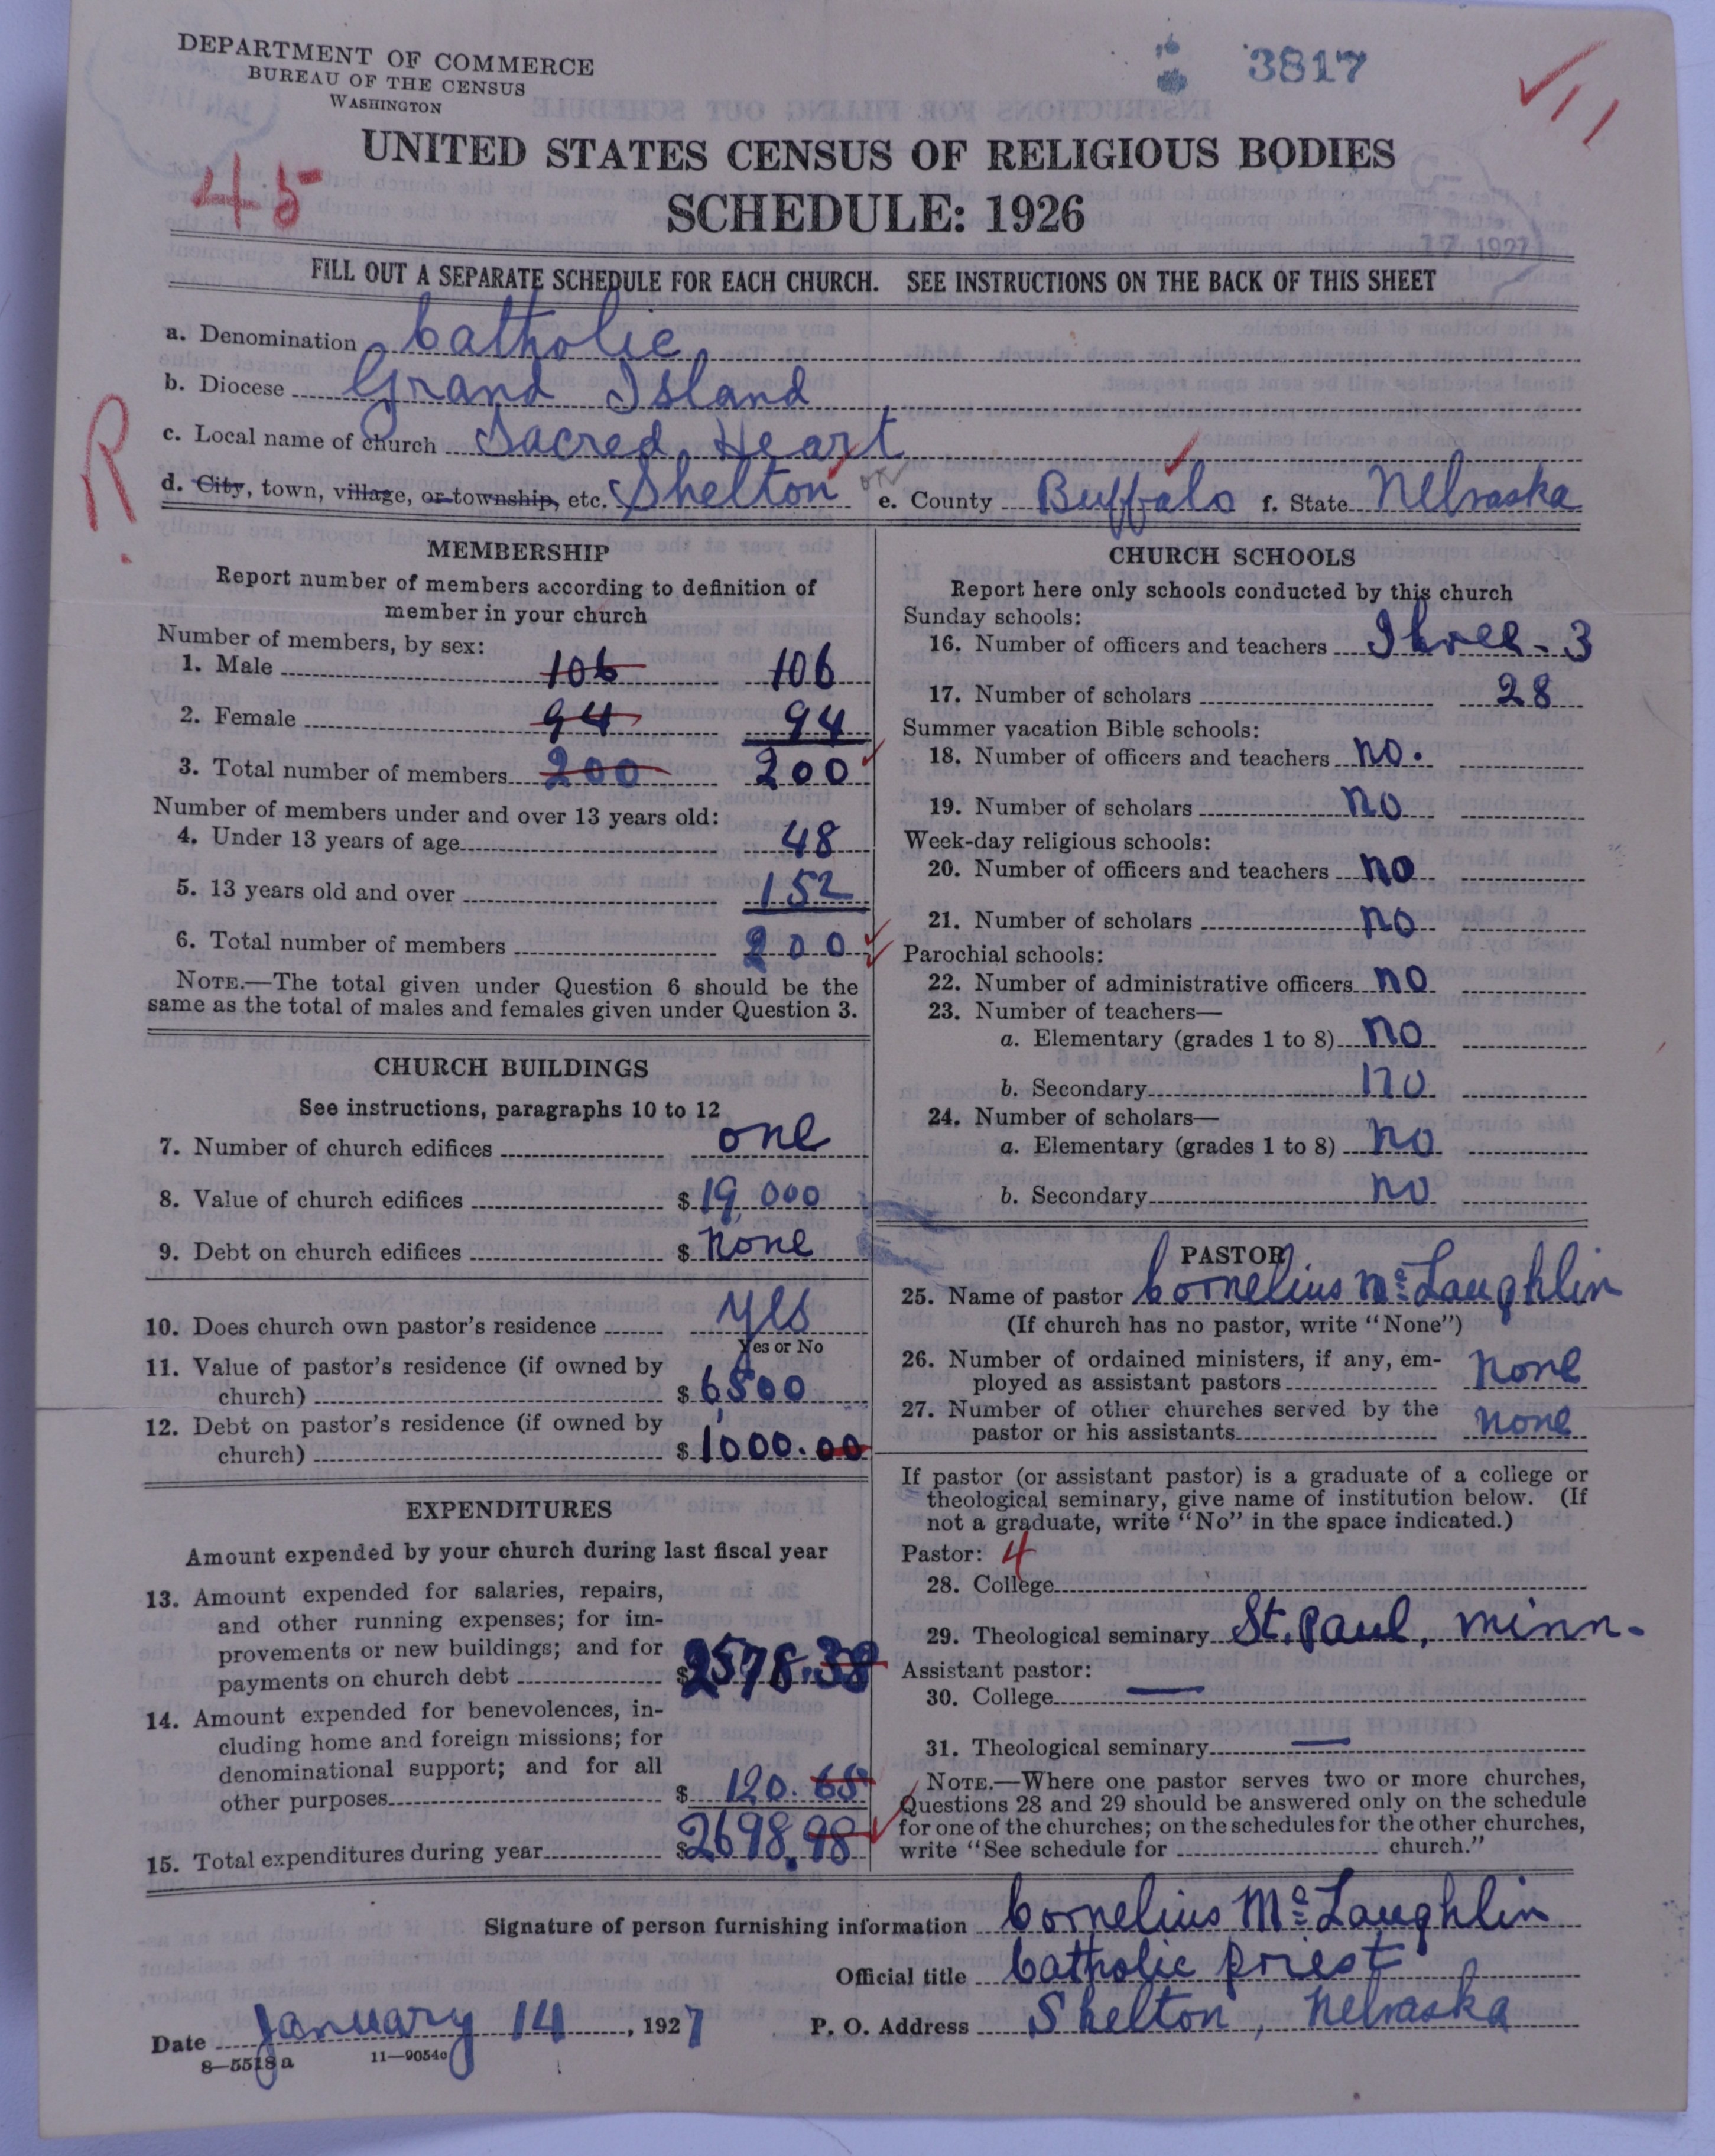 DEPARTMENT OF COMMERCE
BUREAU OF THE CENSUS
WASHINGTON
3817
UNITED STATES CENSUS OF RELIGIOUS BODIES
45
SCHEDULE: 1926
17 1927
FILL OUT A SEPARATE SCHEDULE FOR EACH CHURCH. SEE INSTRUCTIONS ON THE BACK OF THIS SHEET
a. Denomination Catholic
b. Diocese Grand Island
R
c. Local name of church Sacred Heart
d. City, town, village, or township, etc. Shelton e. County Buffalo f. State Nebraska
MEMBERSHIP
Report number of members according to definition of
member in your church
Number of members, by sex:
1. Male 106 106
2. Female 94 94
3. Total number of members 200 200
Number of members under and over 13 years old:
4. Under 13 years of age 48
5. 13 years old and over 152
6. Total number of members 200
NOTE.—The total given under Question 6 should be the
same as the total of males and females given under Question 3.
CHURCH BUILDINGS
See instructions, paragraphs 10 to 12
7. Number of church edifices one
8. Value of church edifices $ 19,000
9. Debt on church edifices $ none
10. Does church own pastor's residence yes
Yes or No
11. Value of pastor's residence (if owned by
church) $ 6,500
12. Debt on pastor's residence (if owned by
church) $ 1000.00
EXPENDITURES
Amount expended by your church during last fiscal year
13. Amount expended for salaries, repairs,
and other running expenses; for im-
provements or new buildings; and for
payments on church debt $ 2578.38
14. Amount expended for benevolences, in-
cluding home and foreign missions; for
denominational support; and for all
other purposes $ 120.
15. Total expenditures during year $ 2698.98
CHURCH SCHOOLS
Report here only schools conducted by this church
Sunday schools:
16. Number of officers and teachers Three - 3
17. Number of scholars 28
Summer vacation Bible schools:
18. Number of officers and teachers no.
19. Number of scholars no
Week-day religious schools:
20. Number of officers and teachers no
21. Number of scholars no
Parochial schools:
22. Number of administrative officers no
23. Number of teachers—
a. Elementary (grades 1 to 8) no
b. Secondary no
24. Number of scholars—
a. Elementary (grades 1 to 8) no
b. Secondary no
PASTOR
25. Name of pastor Cornelius McLaughlin
(If church has no pastor, write "None")
26. Number of ordained ministers, if any, em-
ployed as assistant pastors none
27. Number of other churches served by the
pastor or his assistants none
If pastor (or assistant pastor) is a graduate of a college or
theological seminary, give name of institution below. (If
not a graduate, write "No" in the space indicated.)
Pastor: 4
28. College
29. Theological seminary St. Paul, Minn.
Assistant pastor:
30. College —
31. Theological seminary —
NOTE.—Where one pastor serves two or more churches,
Questions 28 and 29 should be answered only on the schedule
for one of the churches; on the schedules for the other churches,
write "See schedule for church."
Signature of person furnishing information Cornelius McLaughlin
Official title Catholic priest
Date January 14, 1927 P. O. Address Shelton, Nebraska
8—5518a 11—9054c